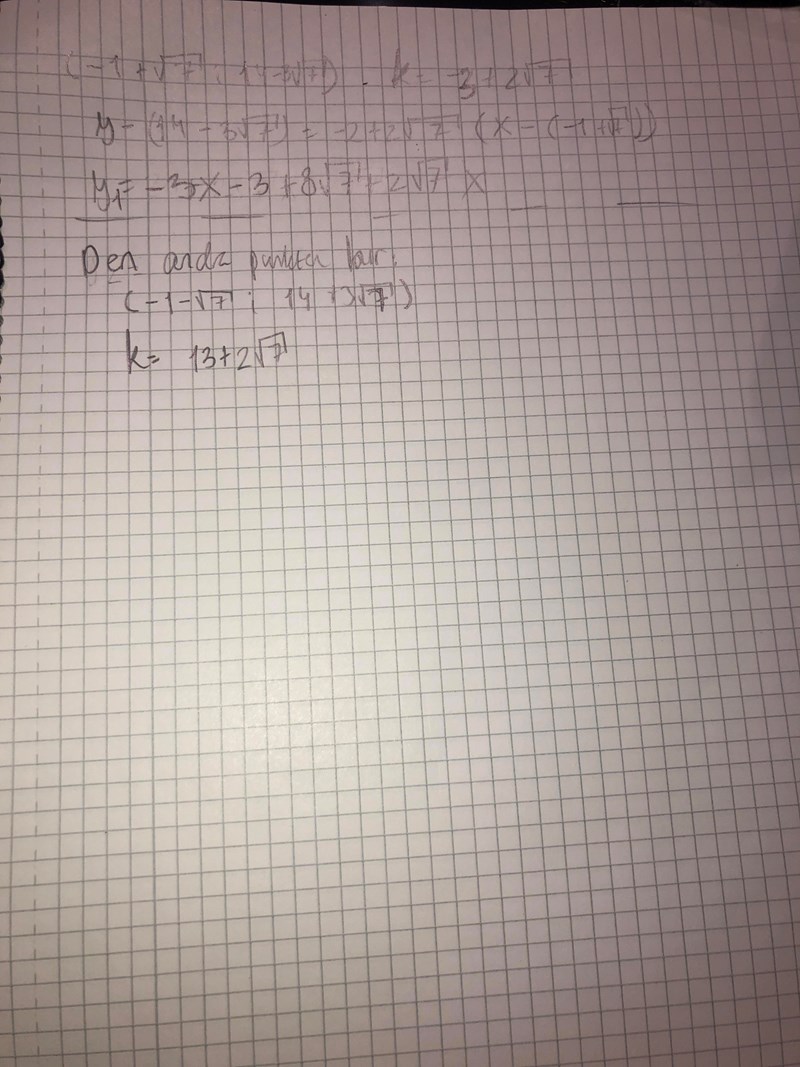 (-1+√7 ; 14-3√7) . k= -3+2√7
y-(14-3√7) = -2+2√7 (x-(-1+√7))
y₁= -3x-3+8√7+2√7 x
Den andra punkten har:
(-1-√7 ; 14+3√7)
k= 13+2√7